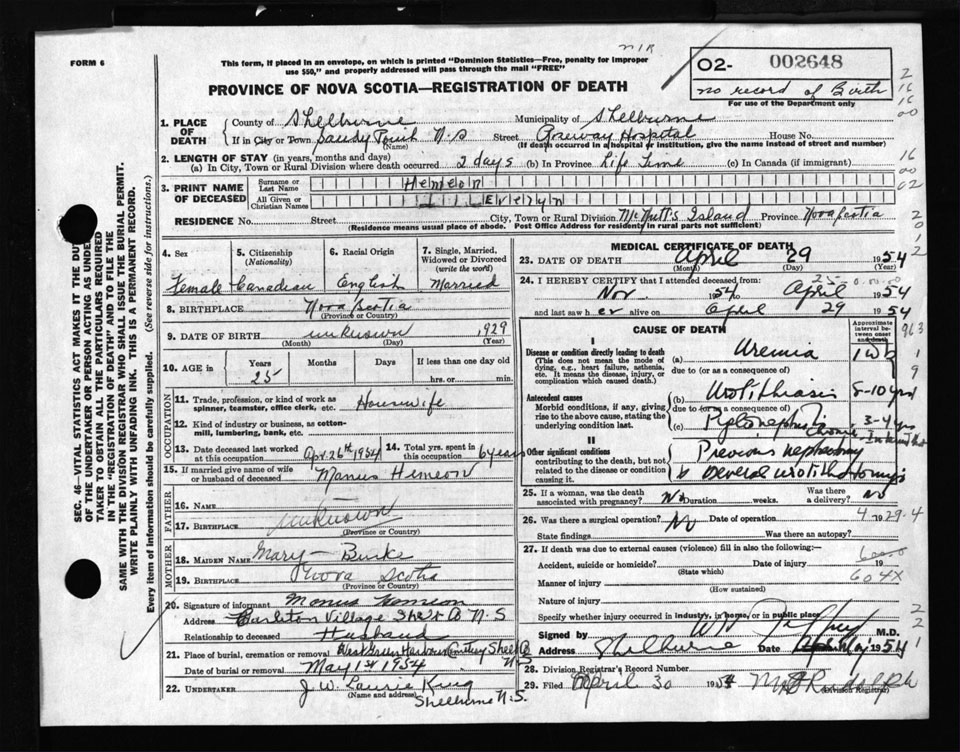 FORM 6
This form, if placed in an envelope, on which is printed "Dominion Statistics—Free, penalty for improper
use $50," and properly addressed will pass through the mail "FREE"
PROVINCE OF NOVA SCOTIA—REGISTRATION OF DEATH
O2- 002648
no record of Birth
For use of the Department only
1. PLACE OF DEATH
County of Shelburne Municipality of Shelburne
If in City or Town Sandy Point N.S Street Roseway Hospital House No.
(Name) (If death occurred in a hospital or institution, give the name instead of street and number)
2. LENGTH OF STAY (in years, months and days)
(a) In City, Town or Rural Division where death occurred 2 days (b) In Province Life Time (c) In Canada (if immigrant)
3. PRINT NAME OF DECEASED
Surname or Last Name Hemeon
All Given or Christian Names Evelyn
RESIDENCE No. Street City, Town or Rural Division McNutt's Island Province Nova Scotia
(Residence means usual place of abode. Post Office Address for residents in rural parts not sufficient)
4. Sex Female
5. Citizenship (Nationality) Canadian
6. Racial Origin English
7. Single, Married, Widowed or Divorced (write the word) Married
8. BIRTHPLACE Nova Scotia
(Province or Country)
9. DATE OF BIRTH unknown 1929
(Month) (Day) (Year)
10. AGE in Years 25 Months Days If less than one day old
hrs. or min.
OCCUPATION
11. Trade, profession, or kind of work as
spinner, teamster, office clerk, etc. Housewife
12. Kind of industry or business, as cotton-
mill, lumbering, bank, etc.
13. Date deceased last worked
at this occupation Apr. 26th 1954
14. Total yrs. spent in
this occupation 6 years
15. If married give name of wife
or husband of deceased Manus Hemeon
FATHER
16. Name
unknown
17. Birthplace
(Province or Country)
MOTHER
18. Maiden Name Mary Burke
19. Birthplace Nova Scotia
(Province or Country)
20. Signature of informant Manus Hemeon
Address Carleton Village Shel Co N.S
Relationship to deceased Husband
21. Place of burial, cremation or removal West Green Harbour Cemetery Shel Co
N.S
Date of burial or removal May 1st 1954
22. Undertaker J. W. Laurie King
(Name and address) Shelburne N.S.
MEDICAL CERTIFICATE OF DEATH
23. DATE OF DEATH April 29 1954
(Month) (Day) (Year)
24. I HEREBY CERTIFY that I attended deceased from:
Nov. 1954 to April 1954
and last saw her alive on April 29 1954
CAUSE OF DEATH
Approximate interval between onset and death
I
Disease or condition directly leading to death
(This does not mean the mode of
dying, e.g., heart failure, asthenia,
etc. It means the disease, injury, or
complication which caused death.)
(a) Uremia 1 wk
due to (or as a consequence of)
Antecedent causes
Morbid conditions, if any, giving
rise to the above cause, stating the
underlying condition last.
(b) Urolithiasis 8-10 yrs
due to (or as a consequence of)
(c) Pyelonephritis Chronic 3-4 yrs
II
Other significant conditions
contributing to the death, but not
related to the disease or condition
causing it.
Previous nephrectomy
25. If a woman, was the death
associated with pregnancy? No Duration weeks. Was there
a delivery? No
26. Was there a surgical operation? No Date of operation 19
State findings Was there an autopsy?
27. If death was due to external causes (violence) fill in also the following:—
Accident, suicide or homicide? Date of injury 19
(State which)
604X
Manner of injury
(How sustained)
Nature of injury
Specify whether injury occurred in industry, in home, or in public place
Signed by M.D.
Address Shelburne Date May 1 1954
28. Division Registrar's Record Number
29. Filed April 30 1954
(Division Registrar)
SEC. 46—VITAL STATISTICS ACT MAKES IT THE DUTY
OF THE UNDERTAKER OR PERSON ACTING AS UNDER-
TAKER TO OBTAIN ALL THE PARTICULARS REQUIRED
IN THE "REGISTRATION OF DEATH" AND TO FILE THE
SAME WITH THE DIVISION REGISTRAR WHO SHALL ISSUE THE BURIAL PERMIT.
WRITE PLAINLY WITH UNFADING INK. THIS IS A PERMANENT RECORD.
Every item of information should be carefully supplied. (See reverse side for instructions.)